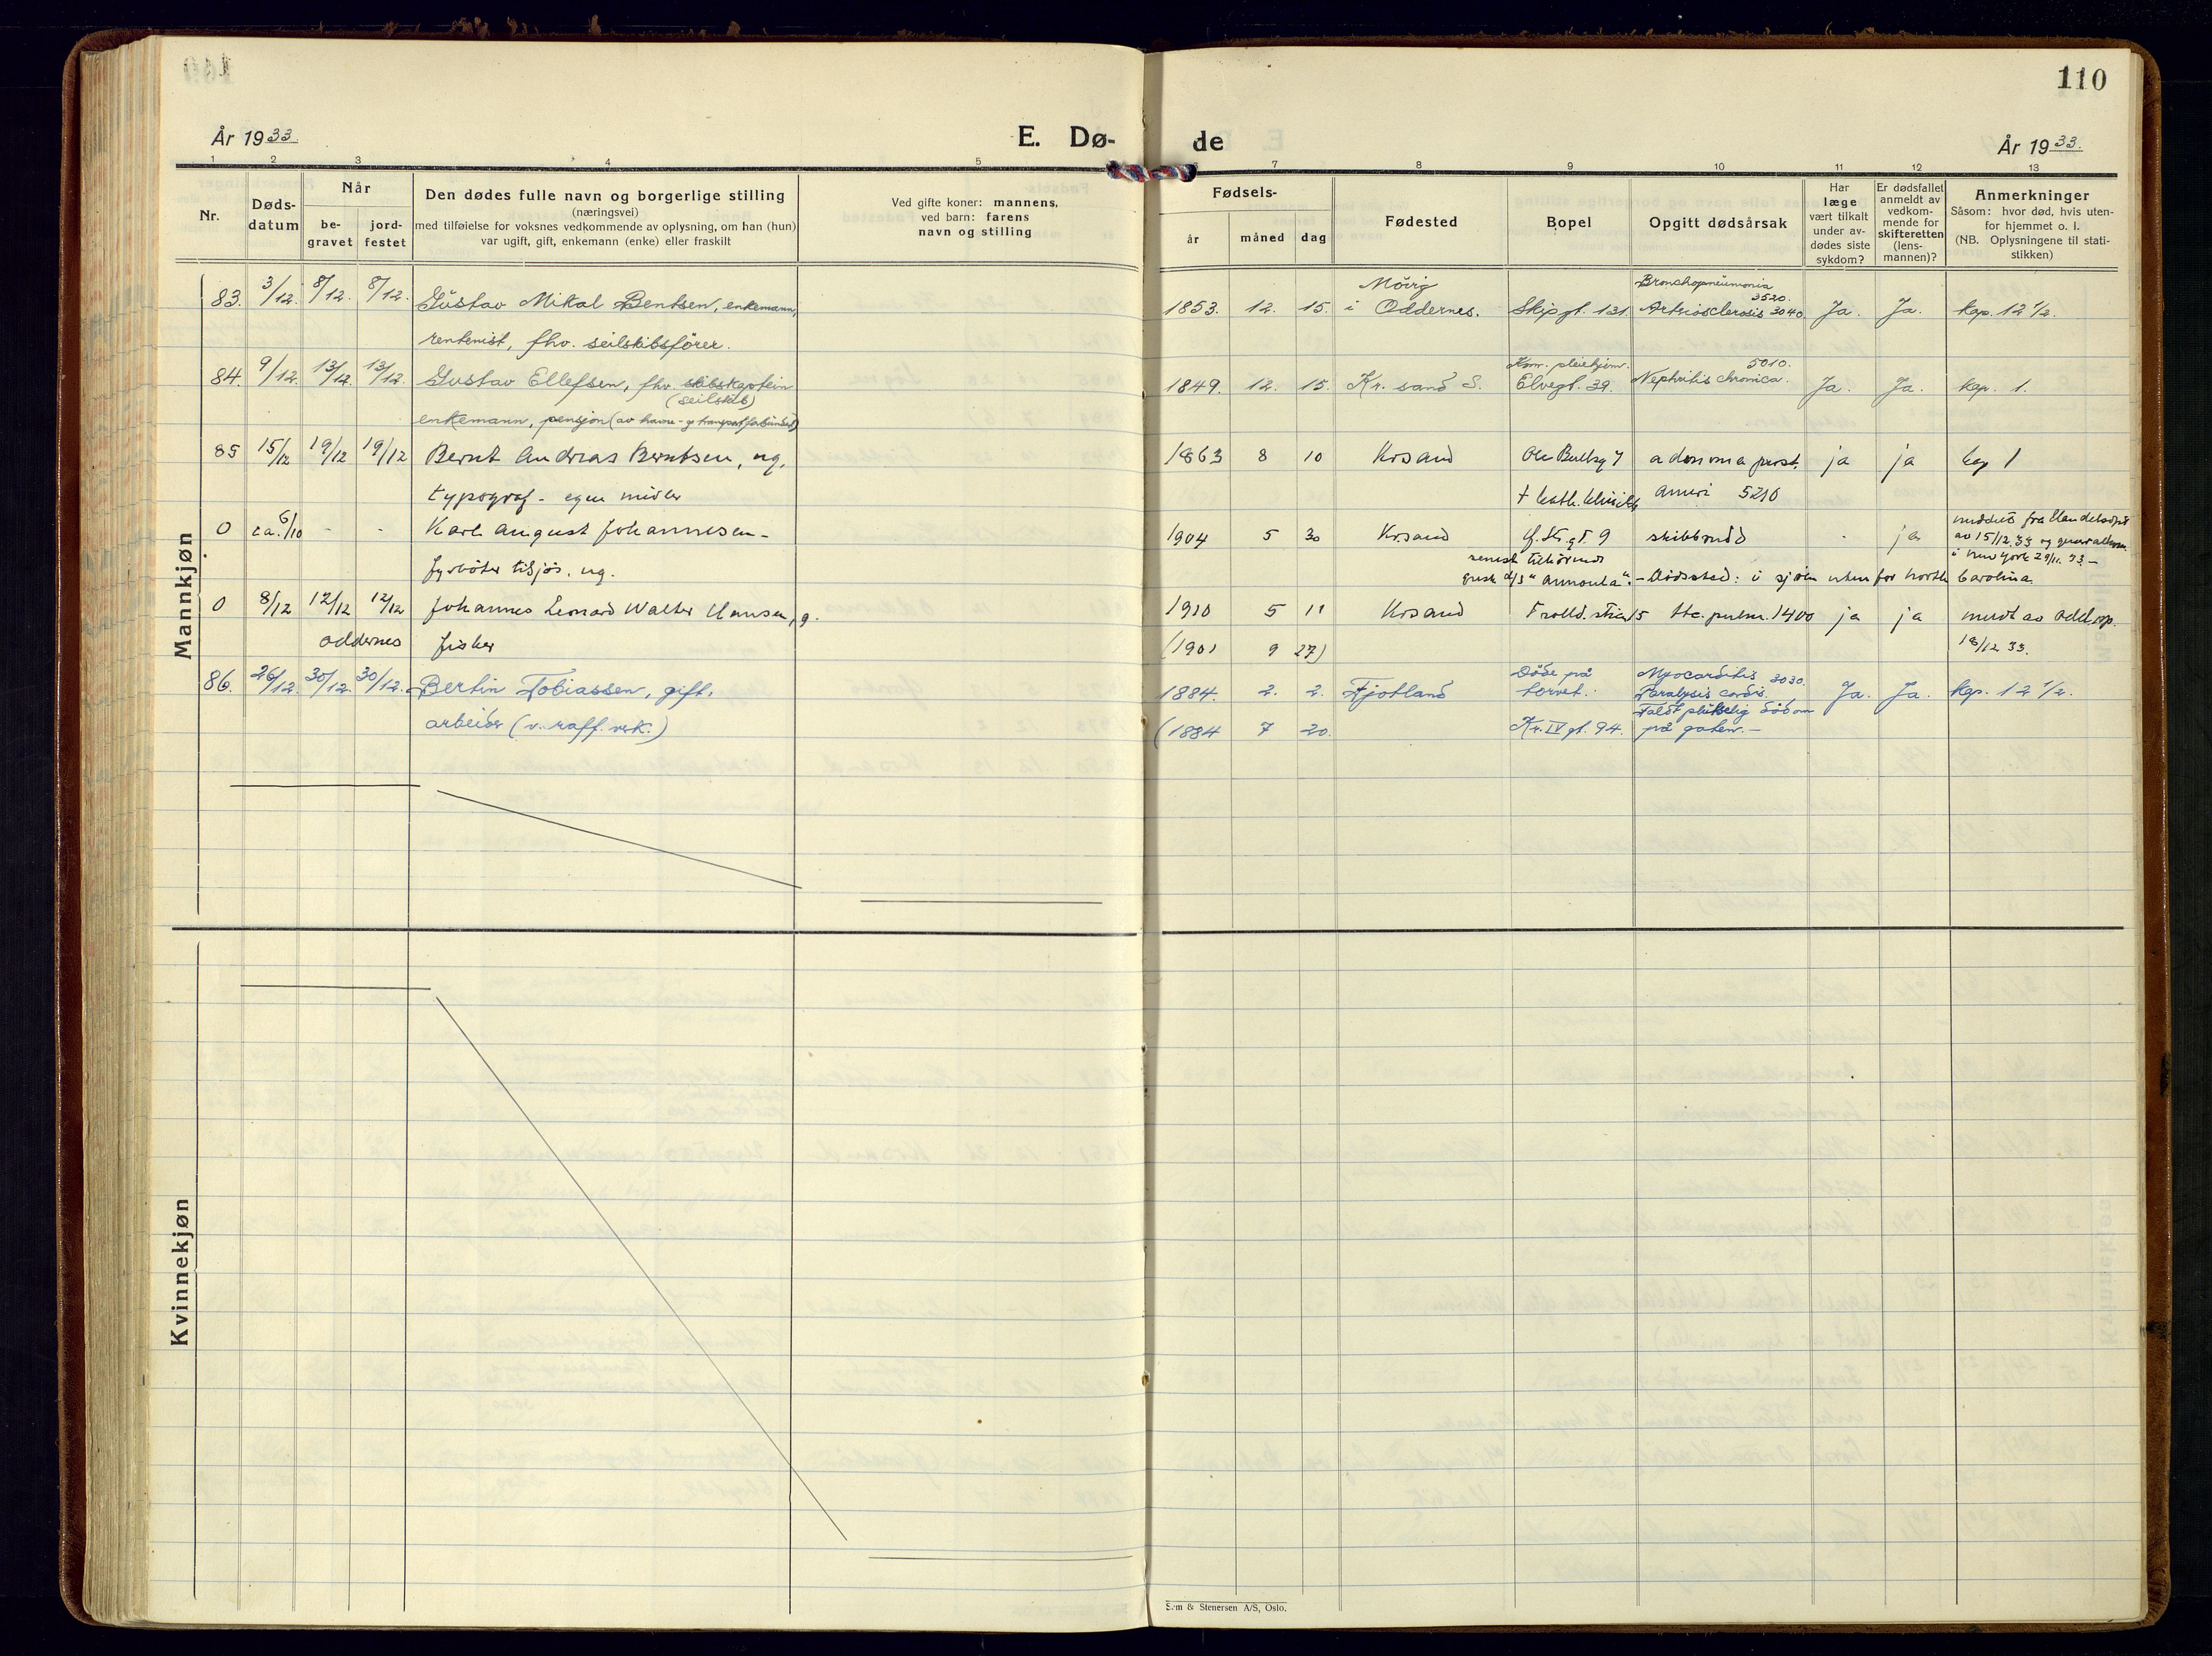 110
År 1933.
E. Dø-
de
År 1933.
1 2 3 4 5 6 7 8 9 10 11 12 13
Nr.
Døds-
datum
Når
be-
gravet
jord-
festet
Den dødes fulle navn og borgerlige stilling
(næringsvei)
med tilføielse for voksnes vedkommende av oplysning, om han (hun)
var ugift, gift, enkemann (enke) eller fraskilt
Ved gifte koner: mannens,
ved barn: farens
navn og stilling
Fødsels-
år
måned
dag
Fødested
Bopel
Opgitt dødsårsak
Har
læge
vært tilkalt
under av-
dødes siste
sykdom?
Er dødsfallet
anmeldt av
vedkom-
mende for
skifteretten
(lens-
mannen)?
Anmerkninger
Såsom: hvor død, hvis uten-
for hjemmet o. l.
(NB. Oplysningene til stati-
stikken)
Mannkjøn
83. 3/12. 8/12. 8/12. Gustav Mikal Bentsen, enkemann,
rentenist, fhv. seilskibsfører.
1853. 12. 15. Møvig
i Oddernes. Skipgt. 131 Bronchopneumonia
3520.
Arteriosclerosis 3040 Ja. Ja. kap. 12 1/2.
84. 9/12. 13/12. 13/12. Gustav Ellefsen, fhv. skibskaptein
(seilskib)
enkemann, pensjon (av havne- og transportforbundet)
1849. 12. 15. Kr. sand S. Kom. pleiehjem.
Elvegt. 39. 5010.
Nephritis chronica. Ja. Ja. kap. 1.
85 15/12 19/12 19/12 Bernt Andreas Berntsen, ug,
typograf - egne midler
1863 8 10 Krsand Ole Bullsg 7 adenoma prost. ja ja kap 1
+ kath. klinikk 5210
0 ca. 6/10 - - Karl August Johannesen -
fyrbøter tilsjøs, ug.
1904 5 30 Krsand skibbrudd - ja
meddelt fra Handelsdpt
av 15/12.33 og generalkons.
i New York 29/11.33. -
senest tilhørende
gresk d/s "Annoula". - Dødssted: i sjøen utenfor North Carolina.
0 8/12 12/12 12/12 Johannes Leonard Walter Hansen, g.
oddernes fisker
1910 5 11 Krsand Trolld. stia 5 tbc. pulm. 1400 ja ja medt av odd. sp.
(1901 9 27) 18/12 33.
86. 26/12. 30/12. 30/12. Bertin Tobiassen, gift,
arbeider (v. raff. verk.)
1884. 2. 2. Fjotland Døde på
torvet. Myocarditis 3030.
Paralysis cordis. Ja. Ja. kap. 12 1/2.
(1884 7 20. Kr. IV gt. 94. Faldt plutselig død om
på gaten. -
Kvinnekjøn
Sem & Stenersen A/S, Oslo.